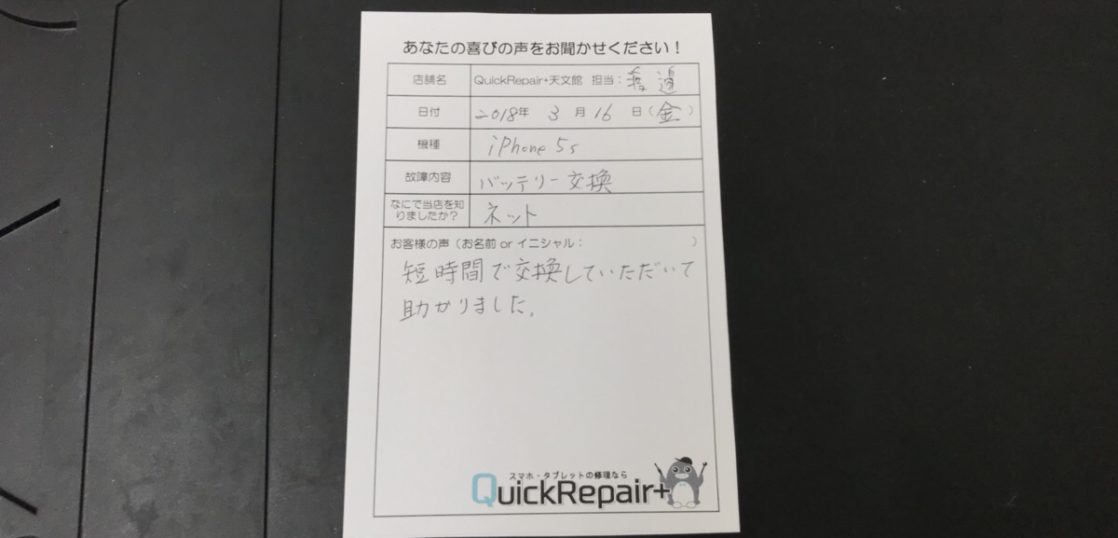 あなたの喜びの声をお聞かせください！
店舗名 QuickRepair+天文館 担当：
日付 2018年 3月16日(金)
機種 iPhone 5s
故障内容 バッテリー交換
なにで当店を知
りましたか？ ネット
お客様の声（お名前 or イニシャル：　　　）
短時間で交換していただいて
助かりました。
スマホ・タブレットの修理なら
QuickRepair+